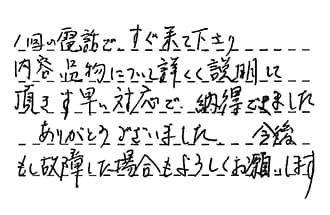 1回の電話で、すぐ来て下さり
内容品物について詳しく説明して
頂きす早い対応で納得できました
ありがとうございました 今後
もし故障した場合もよろしくお願いします